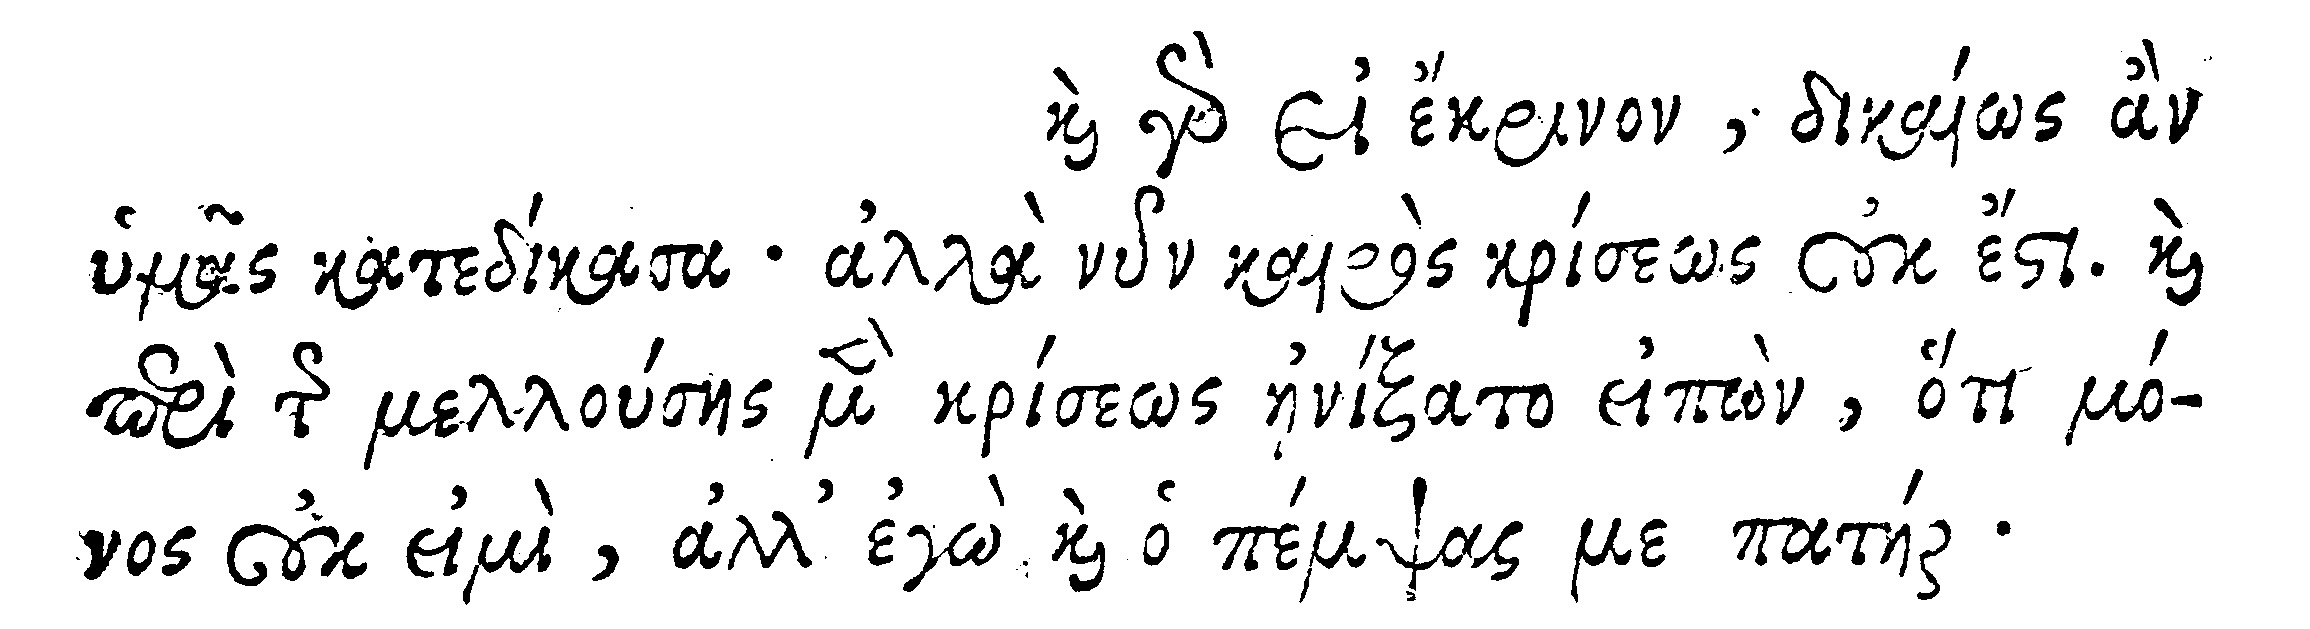 καὶ γὰρ εἰ ἔκρινον, δικαίως ἀν
ὑμᾶς κατεδίκασα· ἀλλὰ νῦν καιρὸς κρίσεως οὐκ ἔστι. καὶ
περὶ τῆς μελλούσης μὲν κρίσεως ἠνίξατο εἰπὼν, ὅτι μό-
νος οὐκ εἰμὶ, ἀλλ' ἐγὼ καὶ ὁ πέμψας με πατήρ·